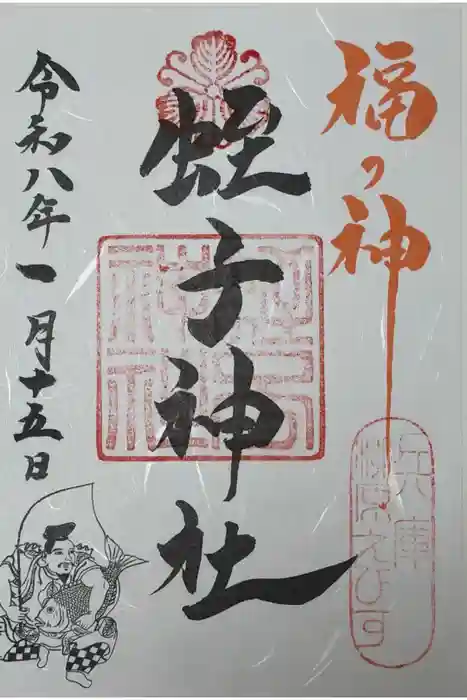 福ノ神
兵庫
柳原えびす
蛭子神社
蛭子
神社
令和八年一月十五日